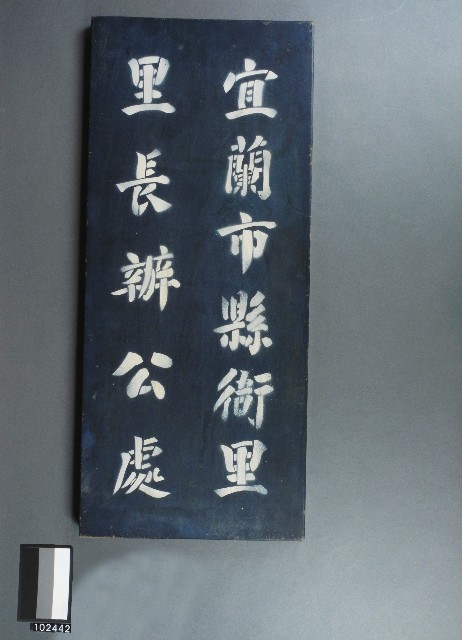 宜蘭市縣衙里
里長辦公處
102442